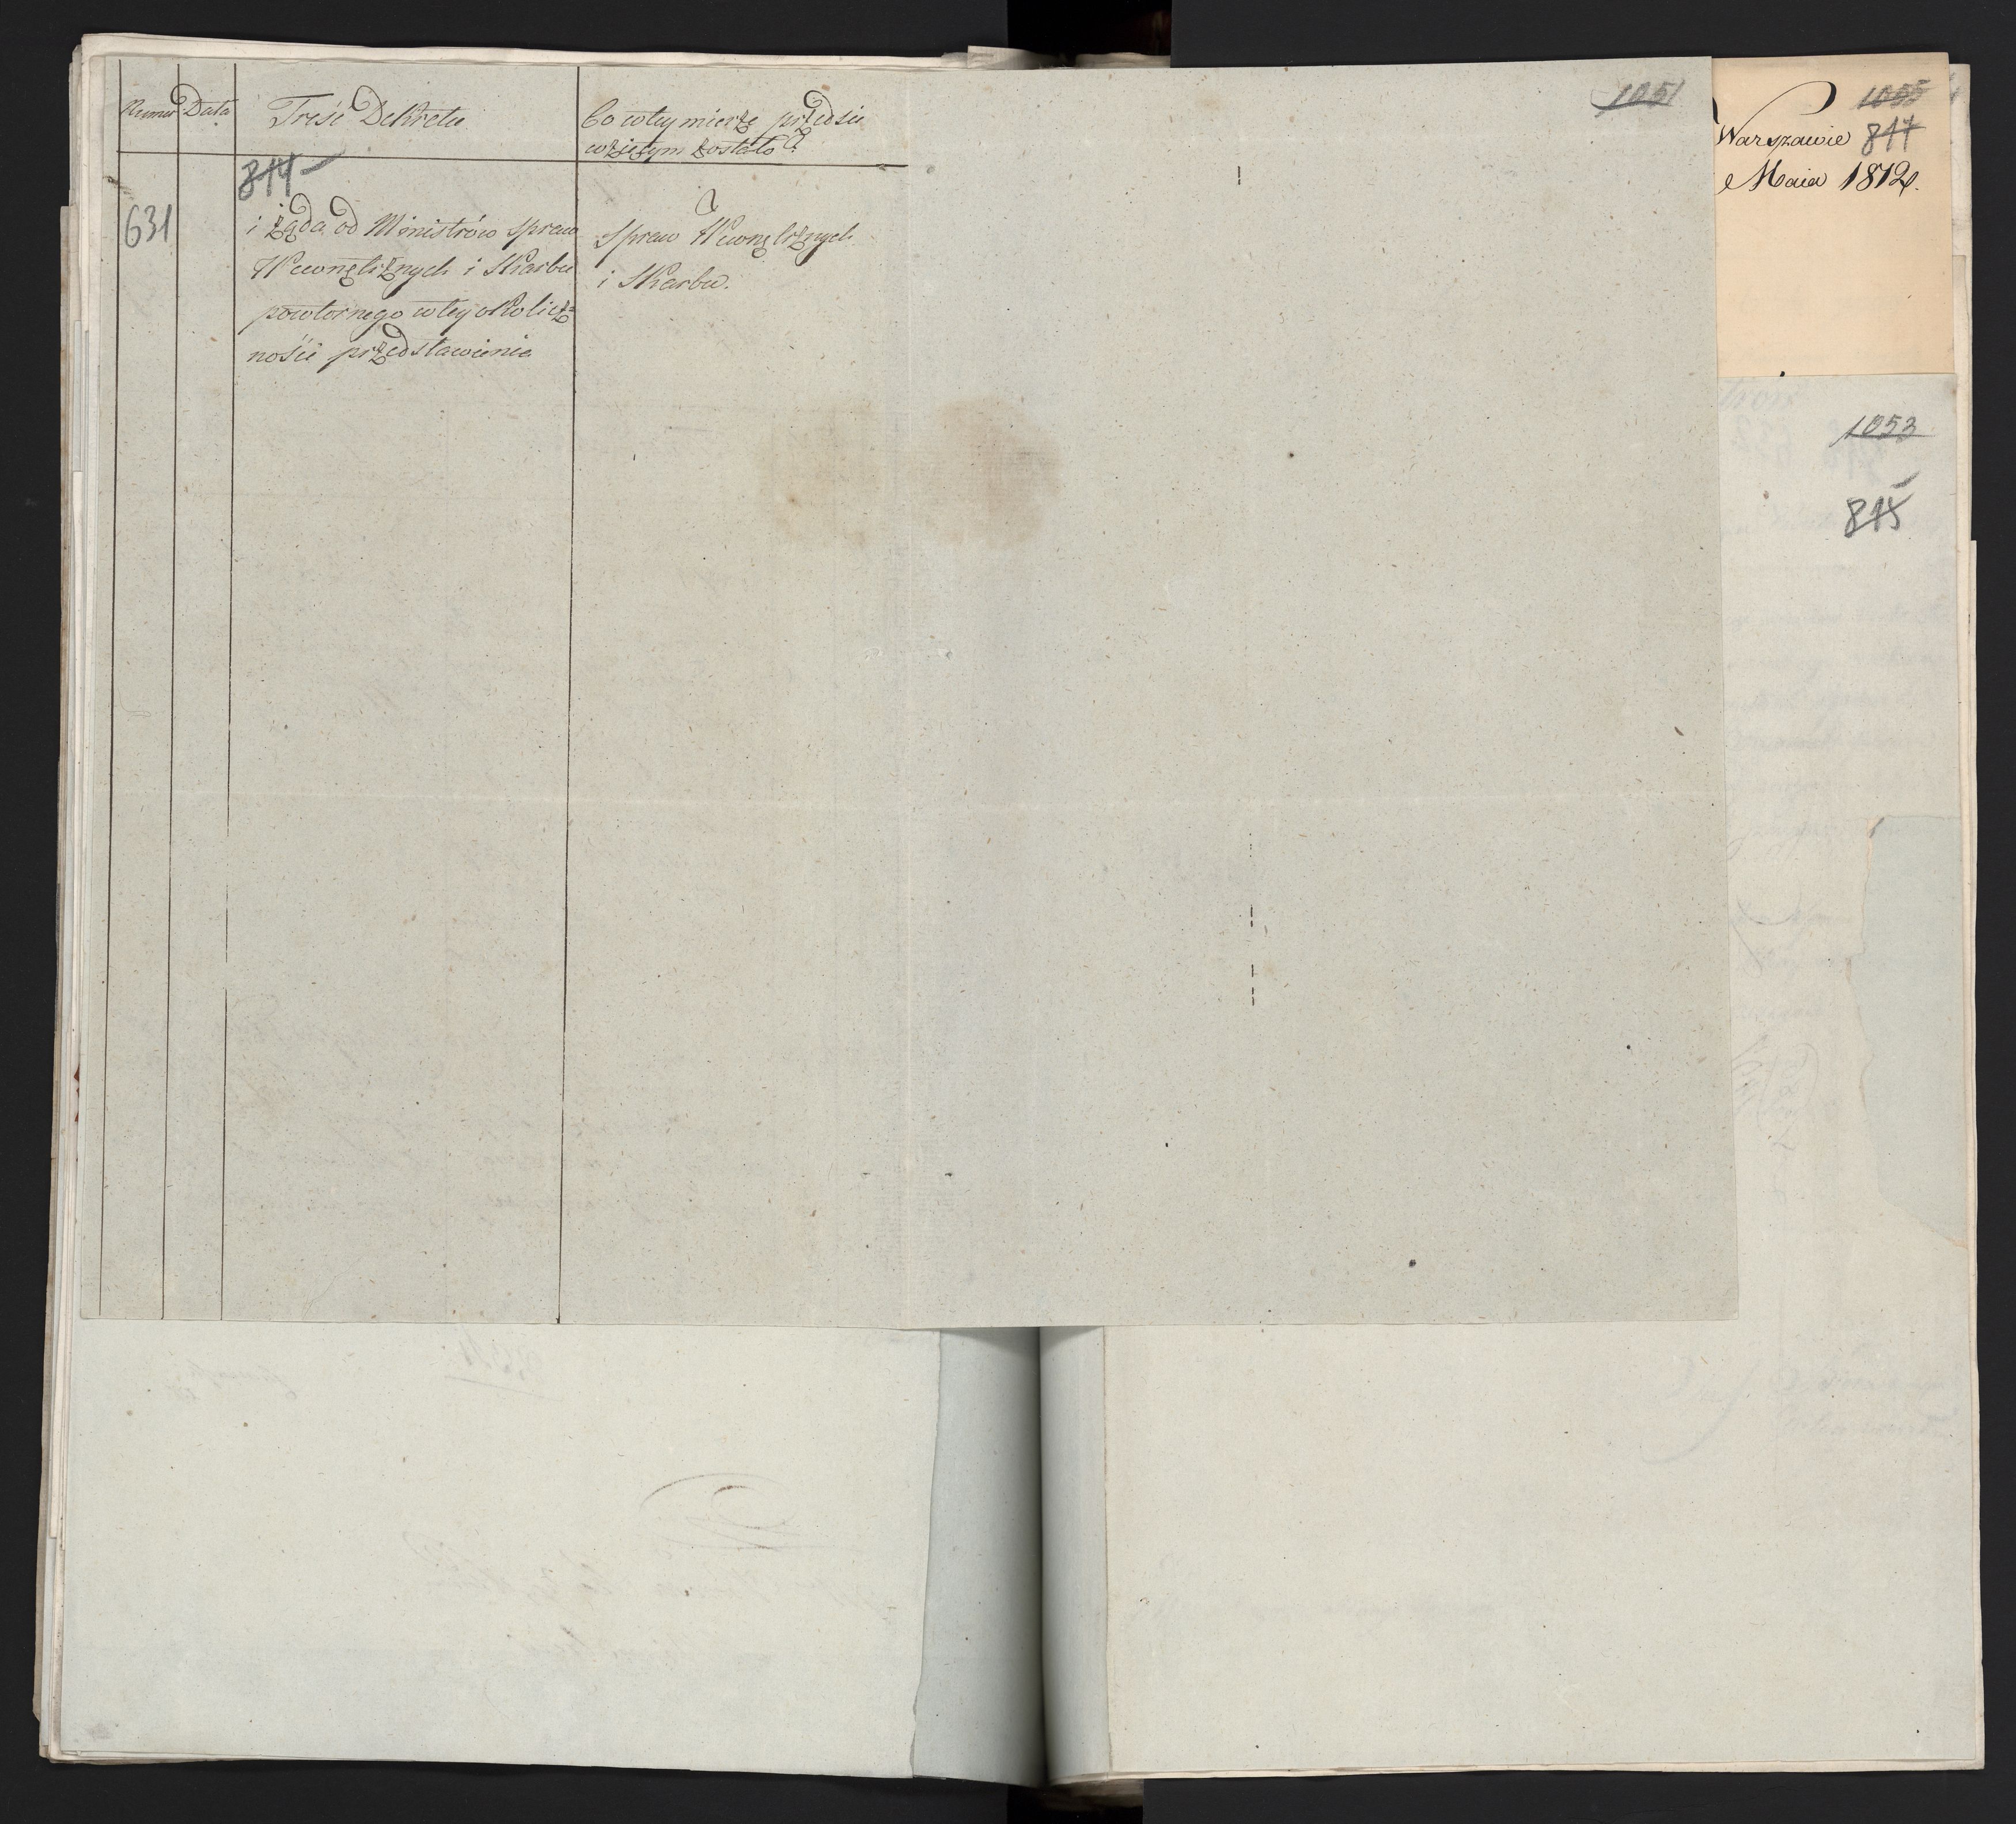 Numer Data Treść Dekretu Co w tey mierze przedsie
wziętym zostało?
814
631
i żąda od Ministrów Spraw
Wewnętrznych i Skarbu
powtornego w tey okolicz=
ności przedstawienia
Spraw Wewnętrznych
i Skarbu.
1051
1055
Warszawie 817
Maia 1812.
1053
815